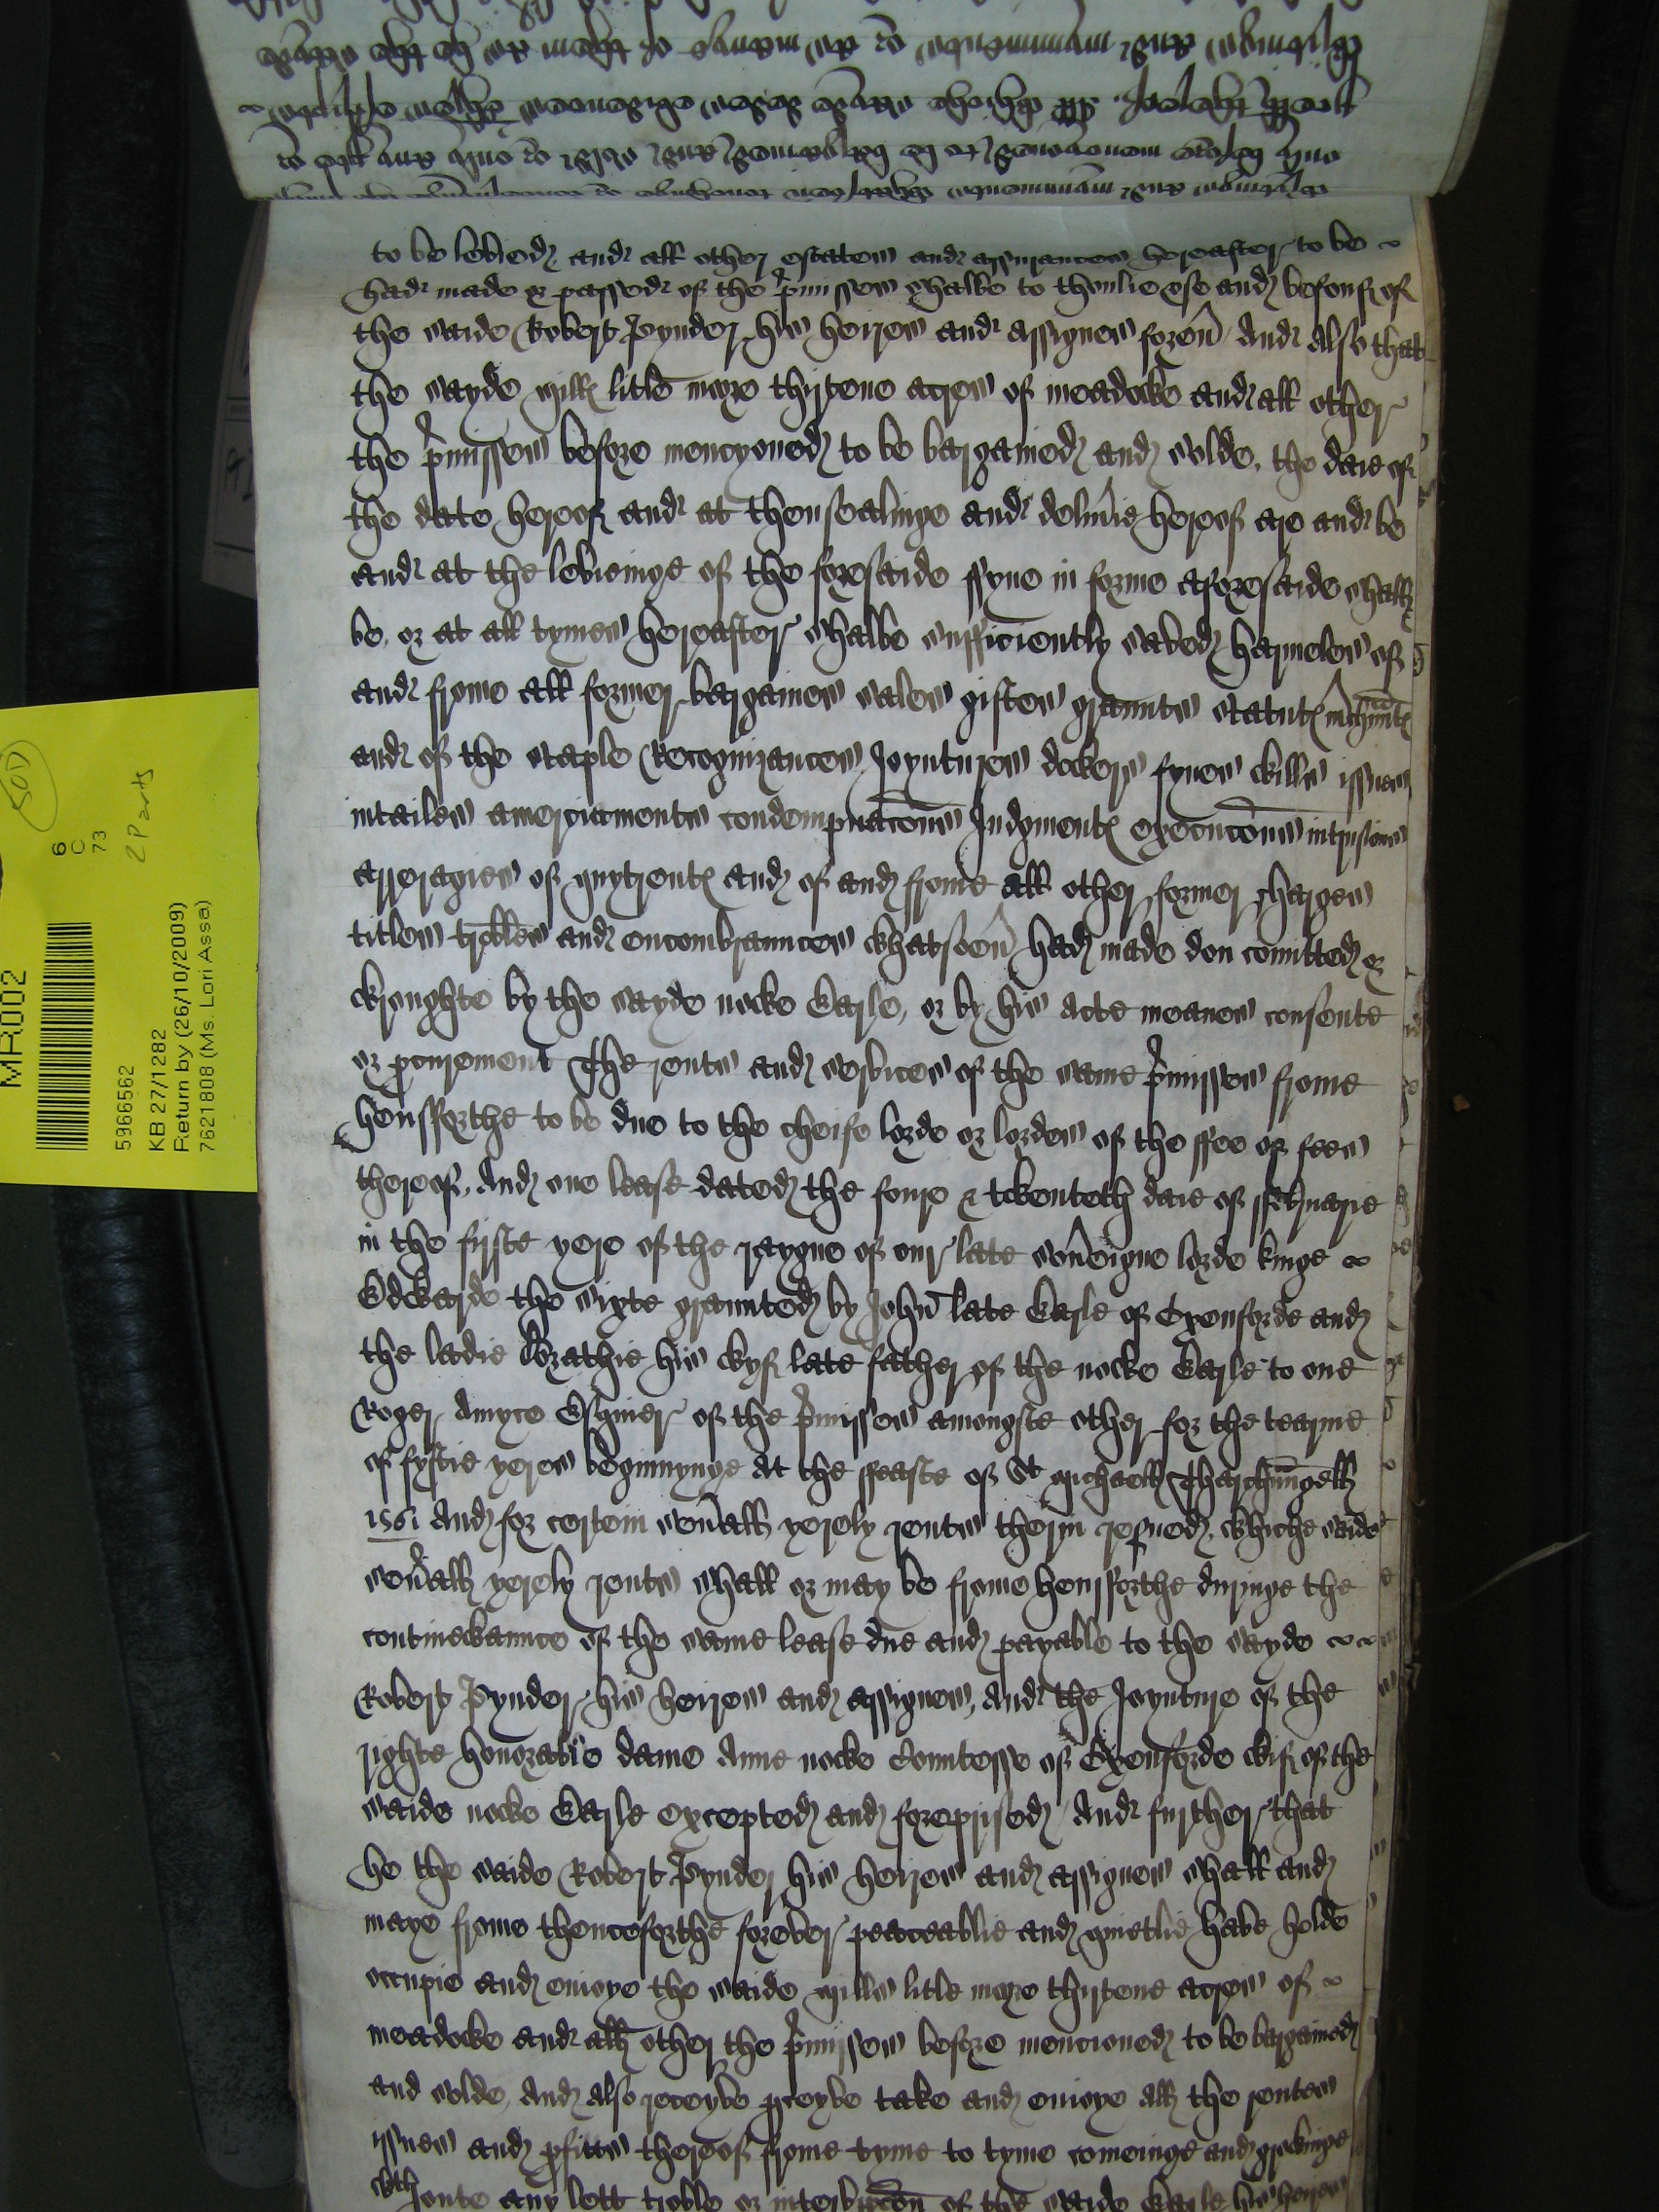 to be levied and all other estates and assurances hereafter to be
had made or passed of the pmisses shalbe to thonlie use and behouf of
the saide Robert Pynder his heires and assignes forev And also that
the sayde mill litle more thirtene acres of meadowe and all other
the pmisses before mencyoned to be bargained and solde, the daie of
the date hereof and at thensealinge and deliverie hereof are and be
and at the levieinge of the foresaide ffyne in forme aforesaide shall
be, or at all tymes hereafter shalbe sufficiently saved harmeles of
and frome all former bargaines sales giftes grauntes statut mchunt
and of the staple Recognizances Joyntures dowers fynes willes issues
intailes amerciamentes condempnacons Judgment execucons intrusions
arreragies of quytrent and of and frome all other former charges
titles trobles and encombraunces whatsoev had made don comitted or
wroughte by the sayde nowe Earle, or by his acte meanes consente
or pcurement The rentes and services of the same pmisses frome
hensfforthe to be due to the cheife lorde or lordes of the ffee or fees
thereof, And one lease dated the foure & twenteth daie of ffebruarie
in the firste yere of the raygne of our late sovreigne lorde kinge
Edwarde the sixte graunted by John late Earle of Oxenforde and
the ladie Dorathie his wyf late father of the nowe Earle to one
Roger Amyce Esquier of the pmisses amongste other for the tearme
of fyftie yeres beginnynge At the ffeaste of St Michaell Tharchungell
1561 And for certein sevall yerely rentes therin resued, whiche saide
sevall yerely rentes shall or may be frome hensforthe duringe the
contineweaunce of the same lease due and payable to the sayde
Robert Pynder his heires and assignes, And the Joynture of the
righte honorable dame Anne nowe Countesse of Oxenforde wif of the
saide nowe Earle excepted and foreprised And further that
he the saide Robert Pynder his heires and assignes shall and
maye frome thenceforthe forever peaceablie and quietlie have holde
occupie and enioye the saide mille litle more thirtene acres of
meadowe and all other the pmisses before mencioned to be bargained
and solde, And also receyve pceyve take and enioye all the rentes
issues and pfittes thereof frome tyme to tyme comeinge and growinge
wthoute any lett troble or interupcon of the saide Earle his heires
MR002
6
C
73
2 Parts
5966562
KB 27/1282
Return by (26/10/2009)
7621808 (Ms. Lori Assa)